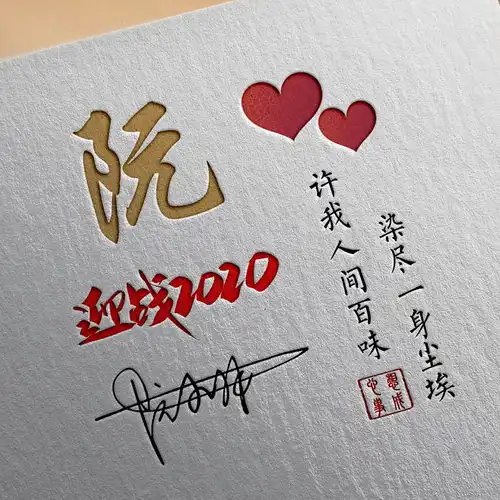 阮
迎战2020
染尽一身尘埃
许我人间百味
心想事成